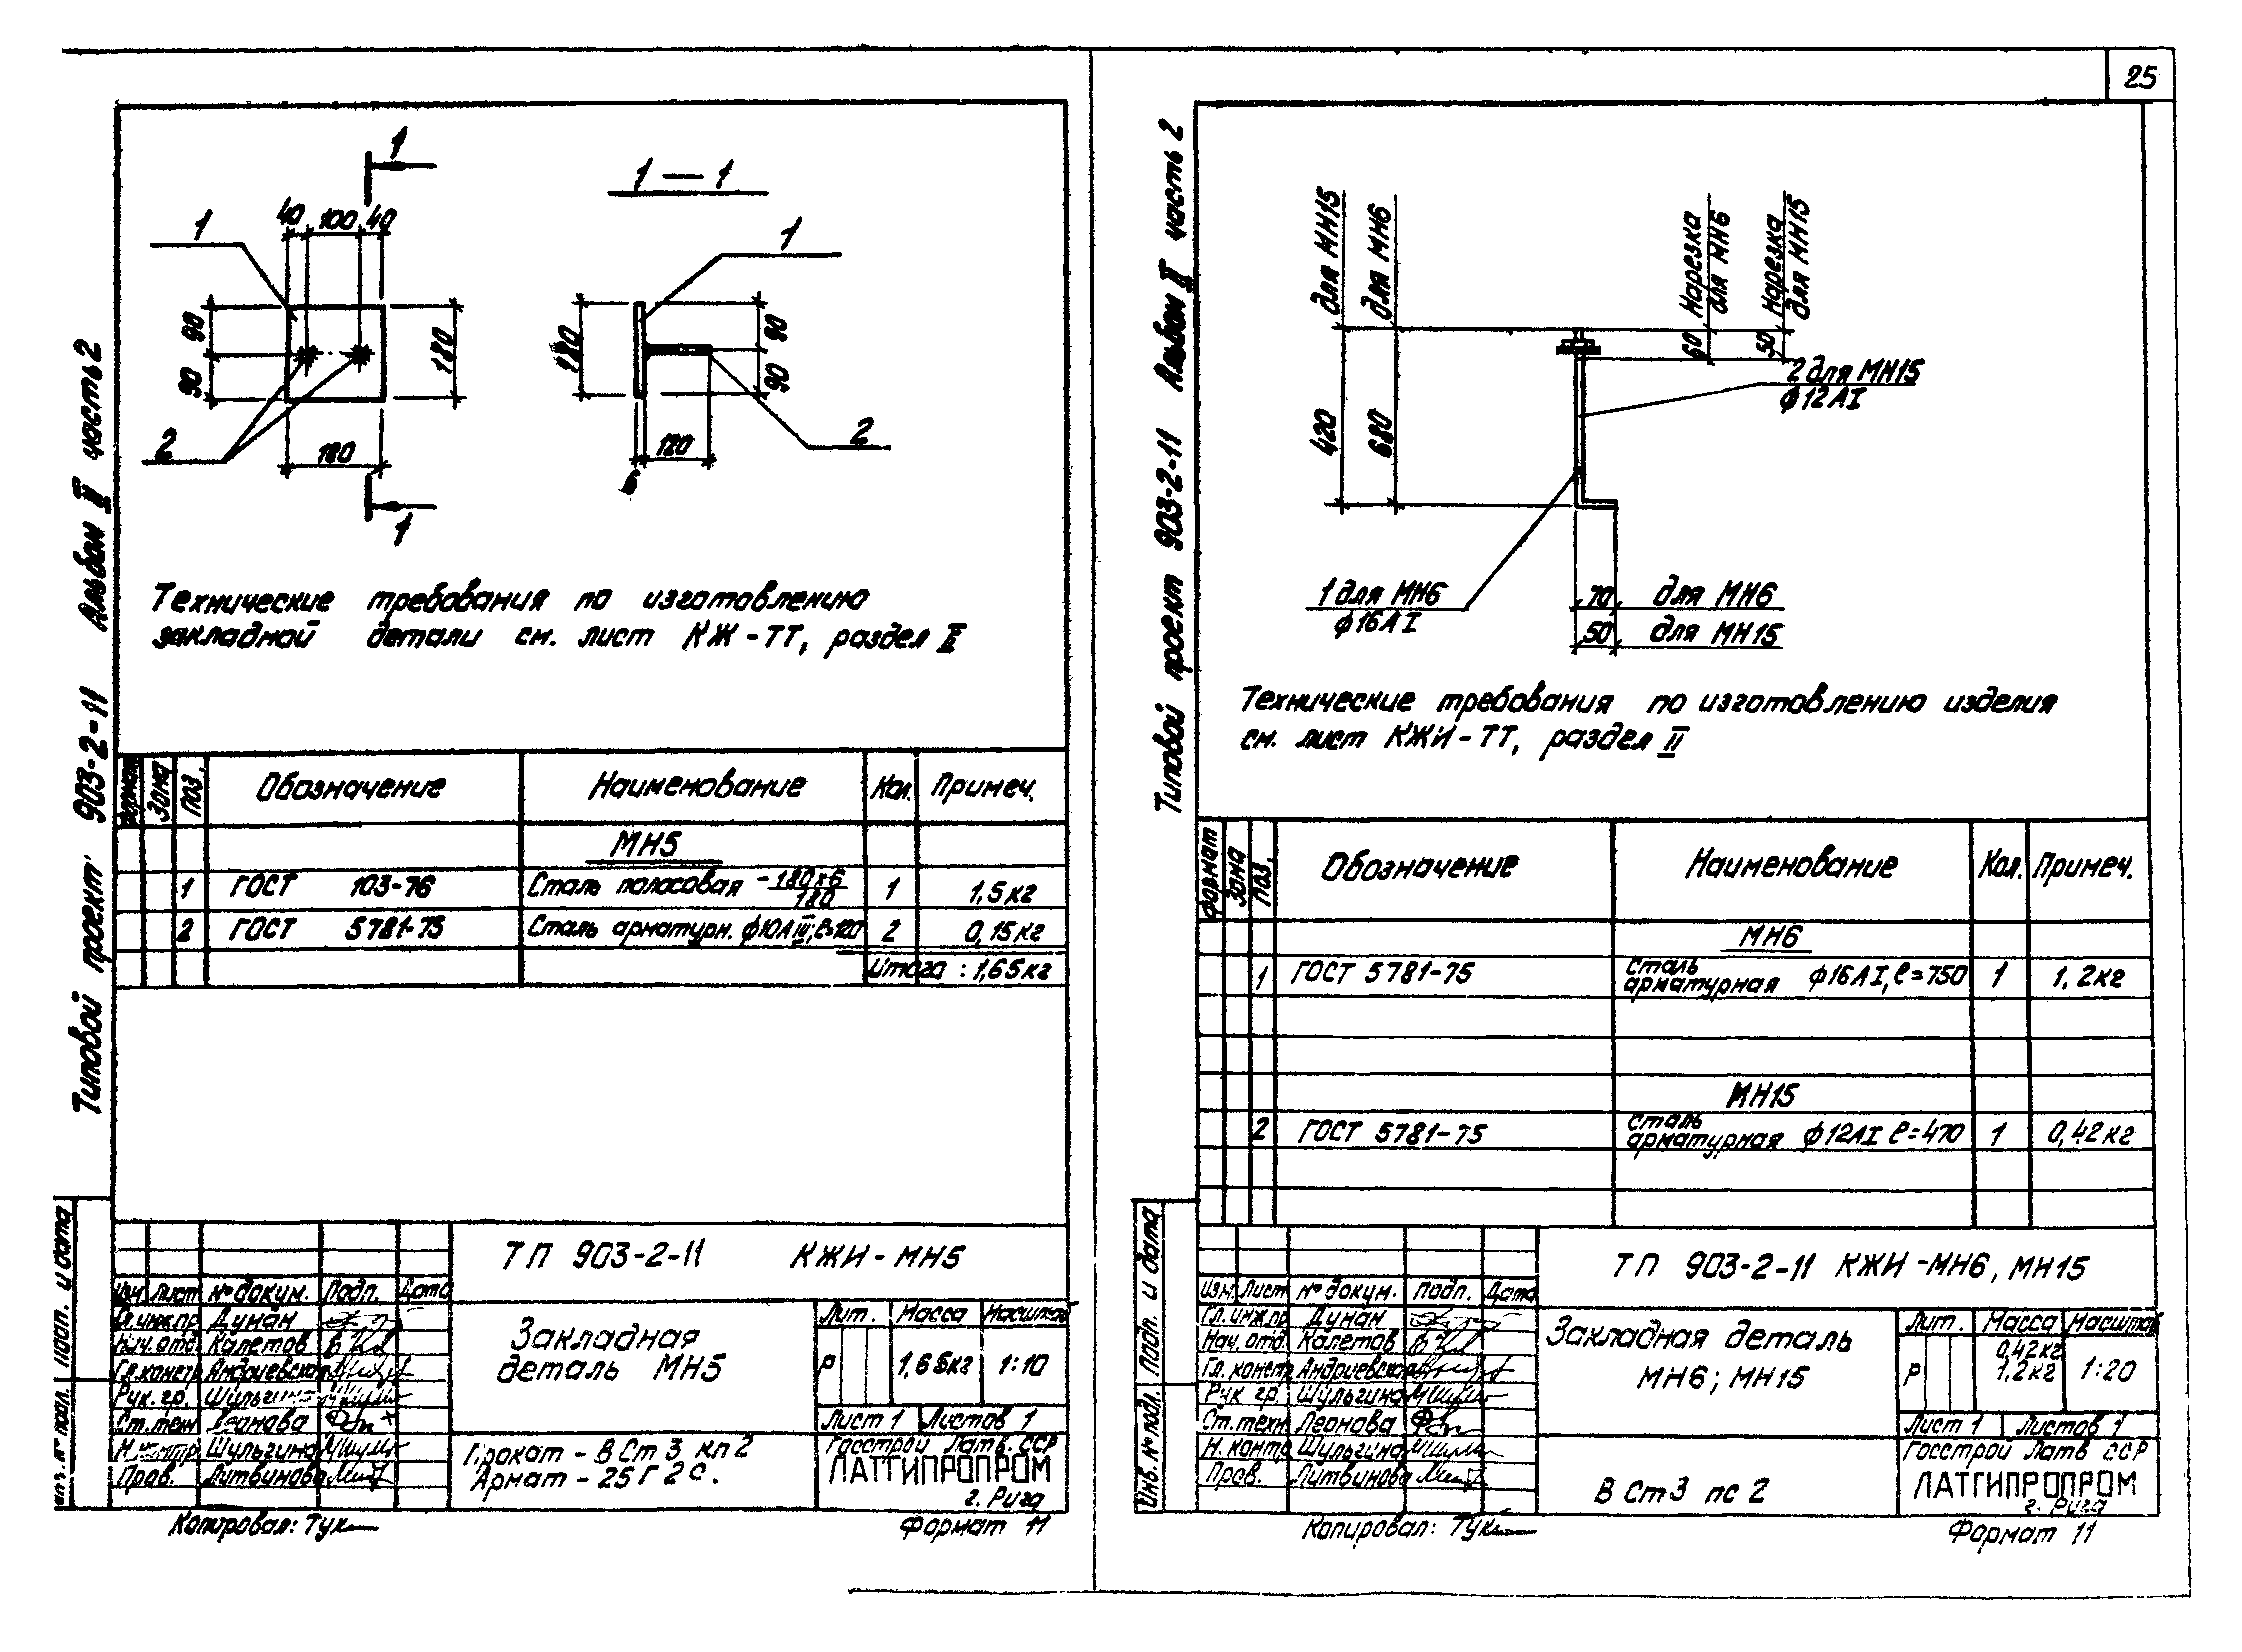 25
Типовой проект 903-2-11 Альбом II часть 2
1
1
40 100 40
90
90
180
180
1
2
1 — 1
1
180
90
90
120
6
2
Технические требования по изготовлению
закладной детали см. лист КЖ-ТТ, раздел II
Формат Зона Поз. Обозначение Наименование Кол. Примеч.
МН5
1 ГОСТ 103-76 Сталь полосовая -180х6/180 1 1,5кг
2 ГОСТ 5781-75 Сталь арматурн. ф10АIII; ℓ=120 2 0,15кг
Итого : 1,65кг
ТП 903-2-11 КЖИ-МН5
Изм. Лист № докум. Подп. Дата
Гл.инж.пр. Дунан
Нач.отд. Калетов
Гл.констр. Андриевская
Рук.гр. Шульгина
Ст.техн. Леонова
Н.контр. Шульгина
Пров. Литвинова
Закладная
деталь МН5
Лит. Масса Масштаб
Р 1,65кг 1:10
Лист 1 Листов 1
Прокат - ВСт3 кп2
Армат - 25Г2С.
Госстрой Латв. ССР
ЛАТГИПРОПРОМ
г. Рига
Инв. № подл. Подп. и дата
Копировал: Тук
Формат 11
Типовой проект 903-2-11 Альбом II часть 2
для МН15
для МН6
Нарезка
для МН6
Нарезка
для МН15
60
50
420
680
2 для МН15
ф12АI
1 для МН6
ф16АI
70 для МН6
50 для МН15
Технические требования по изготовлению изделия
см. лист КЖИ-ТТ, раздел II
Формат Зона Поз. Обозначение Наименование Кол. Примеч.
МН6
1 ГОСТ 5781-75 Сталь арматурная ф16АI, ℓ=750 1 1,2кг
МН15
2 ГОСТ 5781-75 Сталь арматурная ф12АI ℓ=470 1 0,42кг
ТП 903-2-11 КЖИ-МН6, МН15
Изм. Лист № докум. Подп. Дата
Гл.инж.пр. Дунан
Нач.отд. Калетов
Гл.констр. Андриевская
Рук.гр. Шульгина
Ст.техн. Леонова
Н.контр. Шульгина
Пров. Литвинова
Закладная деталь
МН6; МН15
Лит. Масса Масштаб
0,42кг
Р 1,2кг 1:20
Лист 1 Листов 1
ВСт3 пс2
Госстрой Латв ССР
ЛАТГИПРОПРОМ
г. Рига
Инв. № подл. Подп. и дата
Копировал: Тук
Формат 11